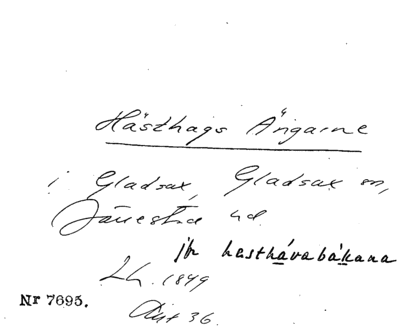 Hästhags Ängarne
i Gladsax, Gladsax sn,
Järrestad hd.
jfr hasthávabákana
Lh. 1849
Akt 36.
Nr 7695.